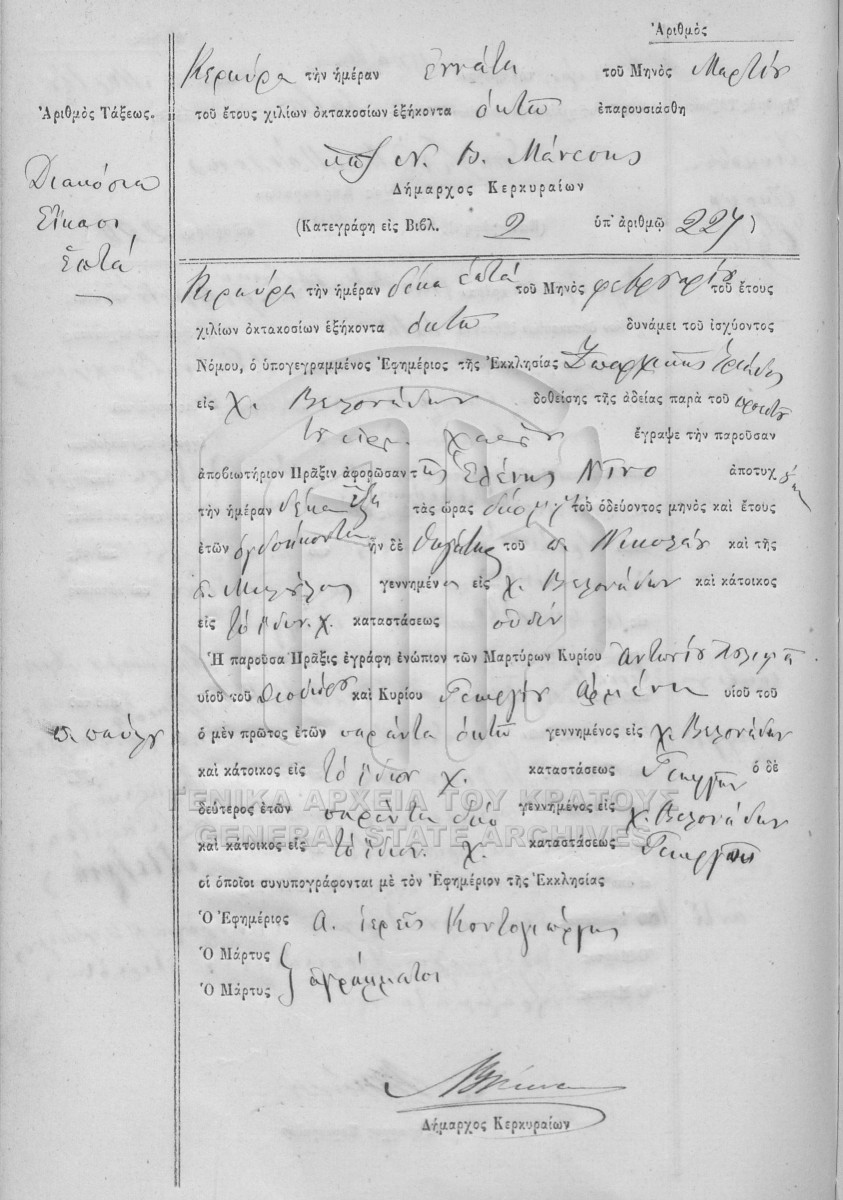 Ἀριθμὸς
Κερκύρα τὴν ἡμέραν ἐννάτη τοῦ Μηνὸς Μαρτίου
Ἀριθμὸς Τάξεως.
τοῦ ἔτους χιλίων ὀκτακοσίων ἑξήκοντα ὀκτὼ ἐπαρουσιάσθη
Ν. Β. Μάνεσης
Δήμαρχος Κερκυραίων
Διακόσια
Εἴκοσι
Ἑπτά
(Κατεγράφη εἰς Βιβλ. 2 ὑπ' ἀριθμῷ 227)
Κερκύρα τὴν ἡμέραν δέκα ἑπτά τοῦ Μηνὸς φεβρουαρίου τοῦ ἔτους
χιλίων ὀκτακοσίων ἑξήκοντα ὀκτὼ δυνάμει τοῦ ἰσχύοντος
Νόμου, ὁ ὑπογεγραμμένος Ἐφημέριος τῆς Ἐκκλησίας
εἰς χ. Βελονάδων δοθείσης τῆς ἀδείας παρὰ τοῦ
ἔγραψε τὴν παροῦσαν
ἀποβιωτήριον Πρᾶξιν ἀφορῶσαν τῆς Ἑλένης Ντινο ἀποτυχ
τὴν ἡμέραν δέκα ἕξη τὰς ὥρας δύο τοῦ ὁδεύοντος μηνὸς καὶ ἔτους
ἐτῶν ὀγδοήκοντα ἦν δὲ θυγάτηρ τοῦ π. Νικολάου καὶ τῆς
γεννημένη εἰς χ. Βελονάδων καὶ κάτοικος
εἰς τὸ ἴδιον χ. καταστάσεως οὐδέν
Ἡ παροῦσα Πρᾶξις ἐγράφη ἐνώπιον τῶν Μαρτύρων Κυρίου Ἀντωνίου
υἱοῦ τοῦ Θεοδώρου καὶ Κυρίου Γεωργίου Ἀρμένη υἱοῦ τοῦ
π. παύλου
ὁ μὲν πρῶτος ἐτῶν σαράντα ὀκτὼ γεννημένος εἰς χ. Βελονάδων
καὶ κάτοικος εἰς τὸ ἴδιον χ. καταστάσεως Γεωργὸς ὁ δὲ
ΓΕΝΙΚΑ ΑΡΧΕΙΑ ΤΟΥ ΚΡΑΤΟΥΣ
δεύτερος ἐτῶν σαράντα δύο γεννημένος εἰς χ. Βελονάδων
GENERAL STATE ARCHIVES
καὶ κάτοικος εἰς τὸ ἴδιον χ. καταστάσεως Γεωργὸς
οἱ ὁποῖοι συνυπογράφονται μὲ τὸν Ἐφημέριον τῆς Ἐκκλησίας
Ὁ Ἐφημέριος Α. ἱερεὺς Κοντογιώργης
Ὁ Μάρτυς
Ὁ Μάρτυς ἀγράμματοι
Δήμαρχος Κερκυραίων